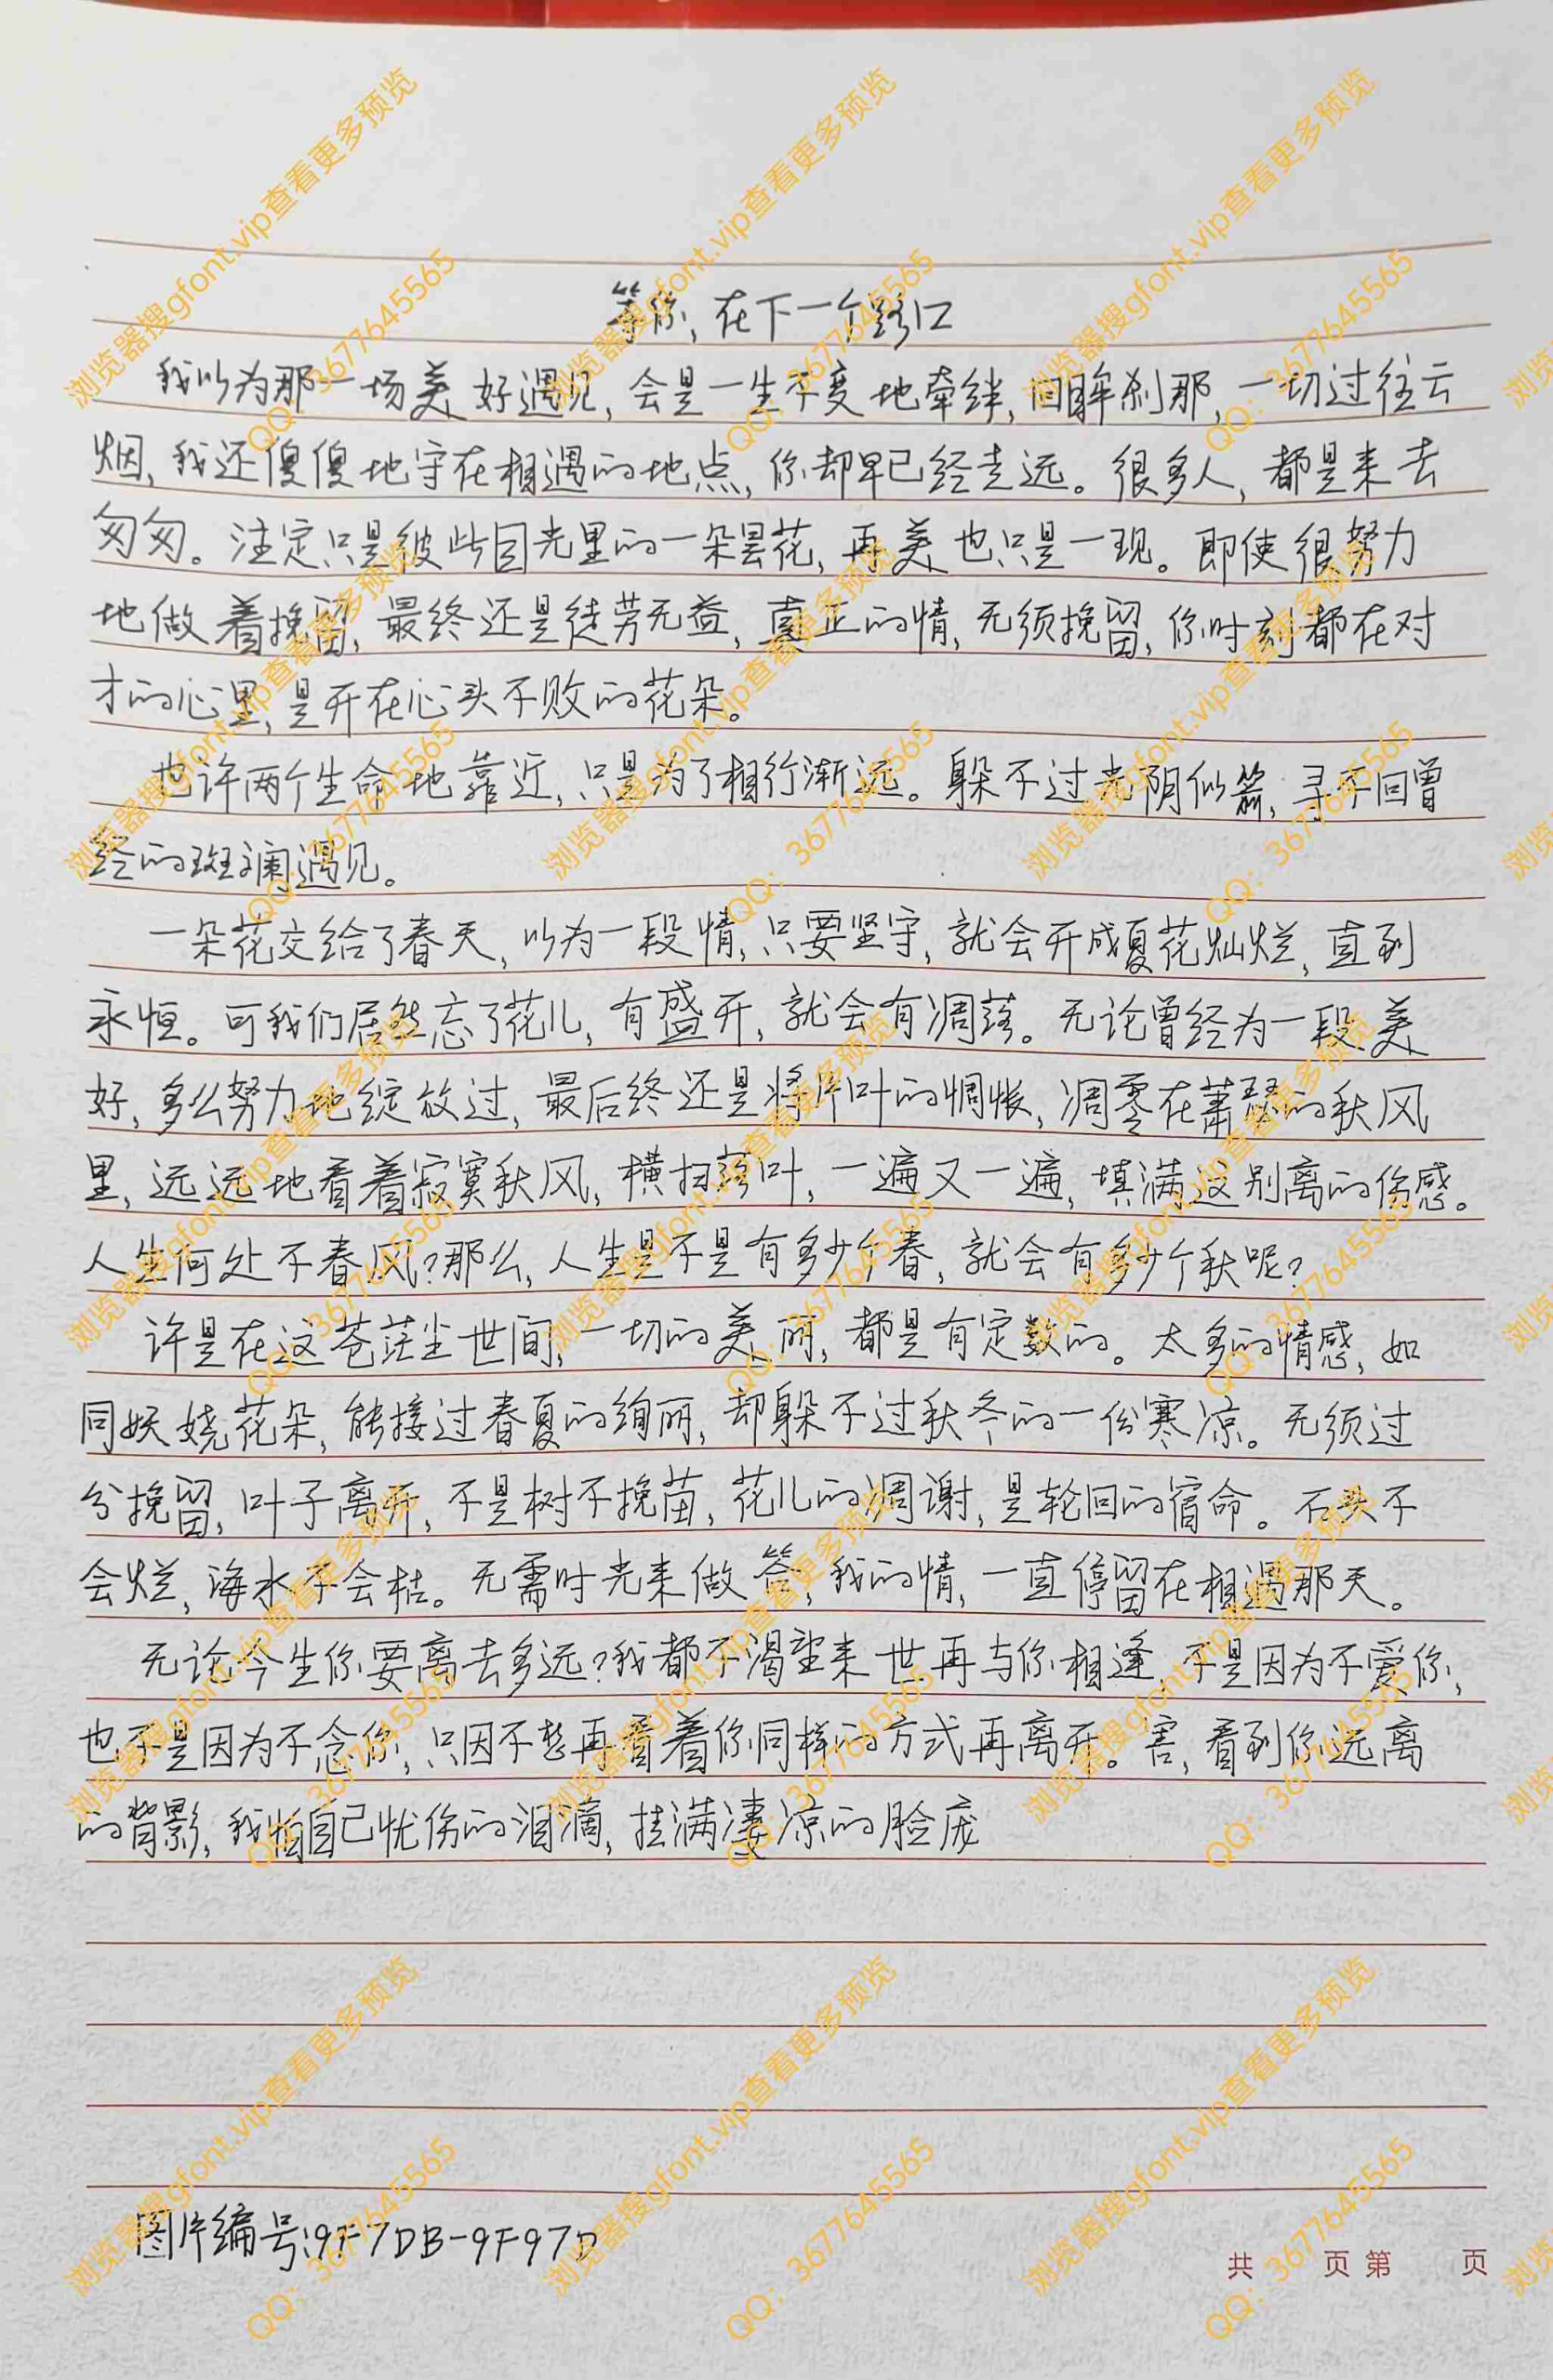 等你,在下一个路口
我以为那一场美好遇见,会是一生不变地牵绊,回眸刹那,一切过往云
烟,我还傻傻地守在相遇的地点,你却早已经走远。很多人,都是来去
匆匆。注定只是彼此目光里的一朵昙花,再美也只是一现。即使很努力
地做着挽留,最终还是徒劳无益,真正的情,无须挽留,你时刻都在对
才的心里,是开在心头不败的花朵。
也许两个生命地靠近,只是为了相行渐远。躲不过光阴似箭,寻不回曾
经的斑斓遇见。
一朵花交给了春天,以为一段情,只要坚守,就会开成夏花灿烂,直到
永恒。可我们居然忘了花儿,有盛开,就会有凋落。无论曾经为一段美
好,多么努力地绽放过,最后终还是将片叶的惆怅,凋零在萧瑟的秋风
里,远远地看着寂寞秋风,横扫落叶,一遍又一遍,填满这别离的伤感。
人生何处不春风?那么,人生是不是有多少个春,就会有多少个秋呢?
许是在这苍茫尘世间,一切的美丽,都是有定数的。太多的情感,如
同妖娆花朵,能接过春夏的绚丽,却躲不过秋冬的一份寒凉。无须过
分挽留,叶子离开,不是树不挽苗,花儿的凋谢,是轮回的宿命。石头不
会烂,海水不会枯。无需时光来做答,我的情,一直停留在相遇那天。
无论今生你要离去多远?我都不渴望来世再与你相逢,不是因为不爱你,
也不是因为不念你,只因不想再看着你同样的方式再离开。害,看到你远离
的背影,我怕自己忧伤的泪滴,挂满凄凉的脸庞
图片编号:9F7DB-9F97D
共 页第 页
浏览器搜gfont.vip查看更多预览
QQ:3677645565